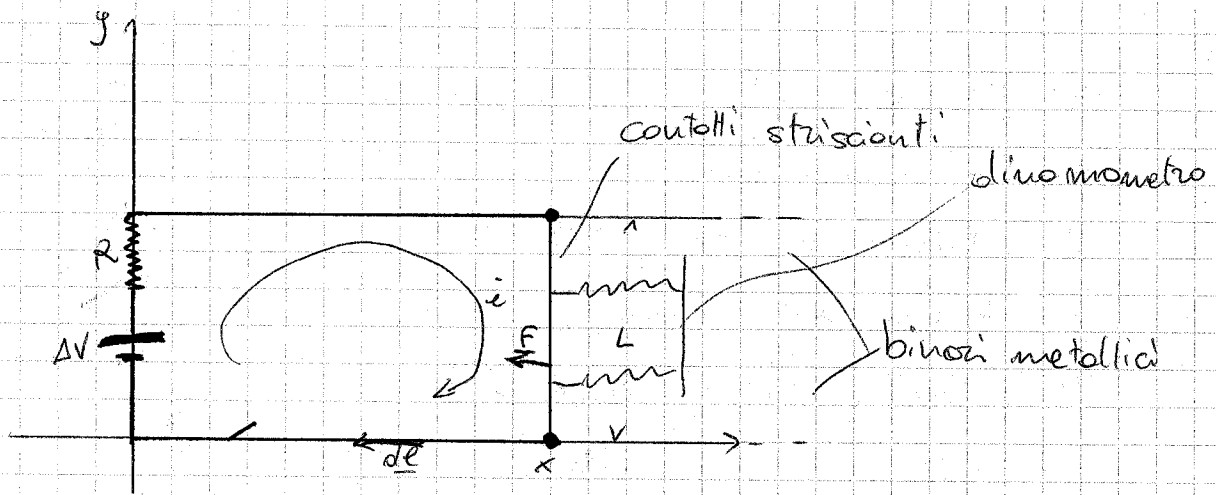 y
contatti striscianti
dinamometro
R
i
F
L
ΔV
binari metallici
dl
x